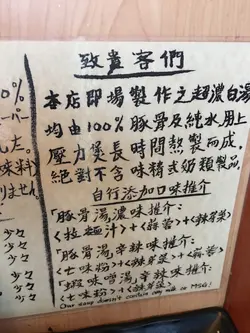 致貴客們
本店即場製作之超濃白湯
均由100%豚骨及純水用上
壓力煲長時間熬製而成,
絕對不含味精或奶類製品
自行添加口味推介
「豚骨湯濃味推介:
<拉麵汁>+<蒜蓉>+<辣芽菜>
「豚骨湯」辛辣味推介:
<七味粉>+<辣芽菜>+<蒜蓉>
「蝦味噌湯」辛辣味推介:
<七味粉>+<辣芽菜>
Our soup doesn't contain any milk or MSG!
0%
ーパー
た。
味料)
りません。
少々
少々
少々
少々